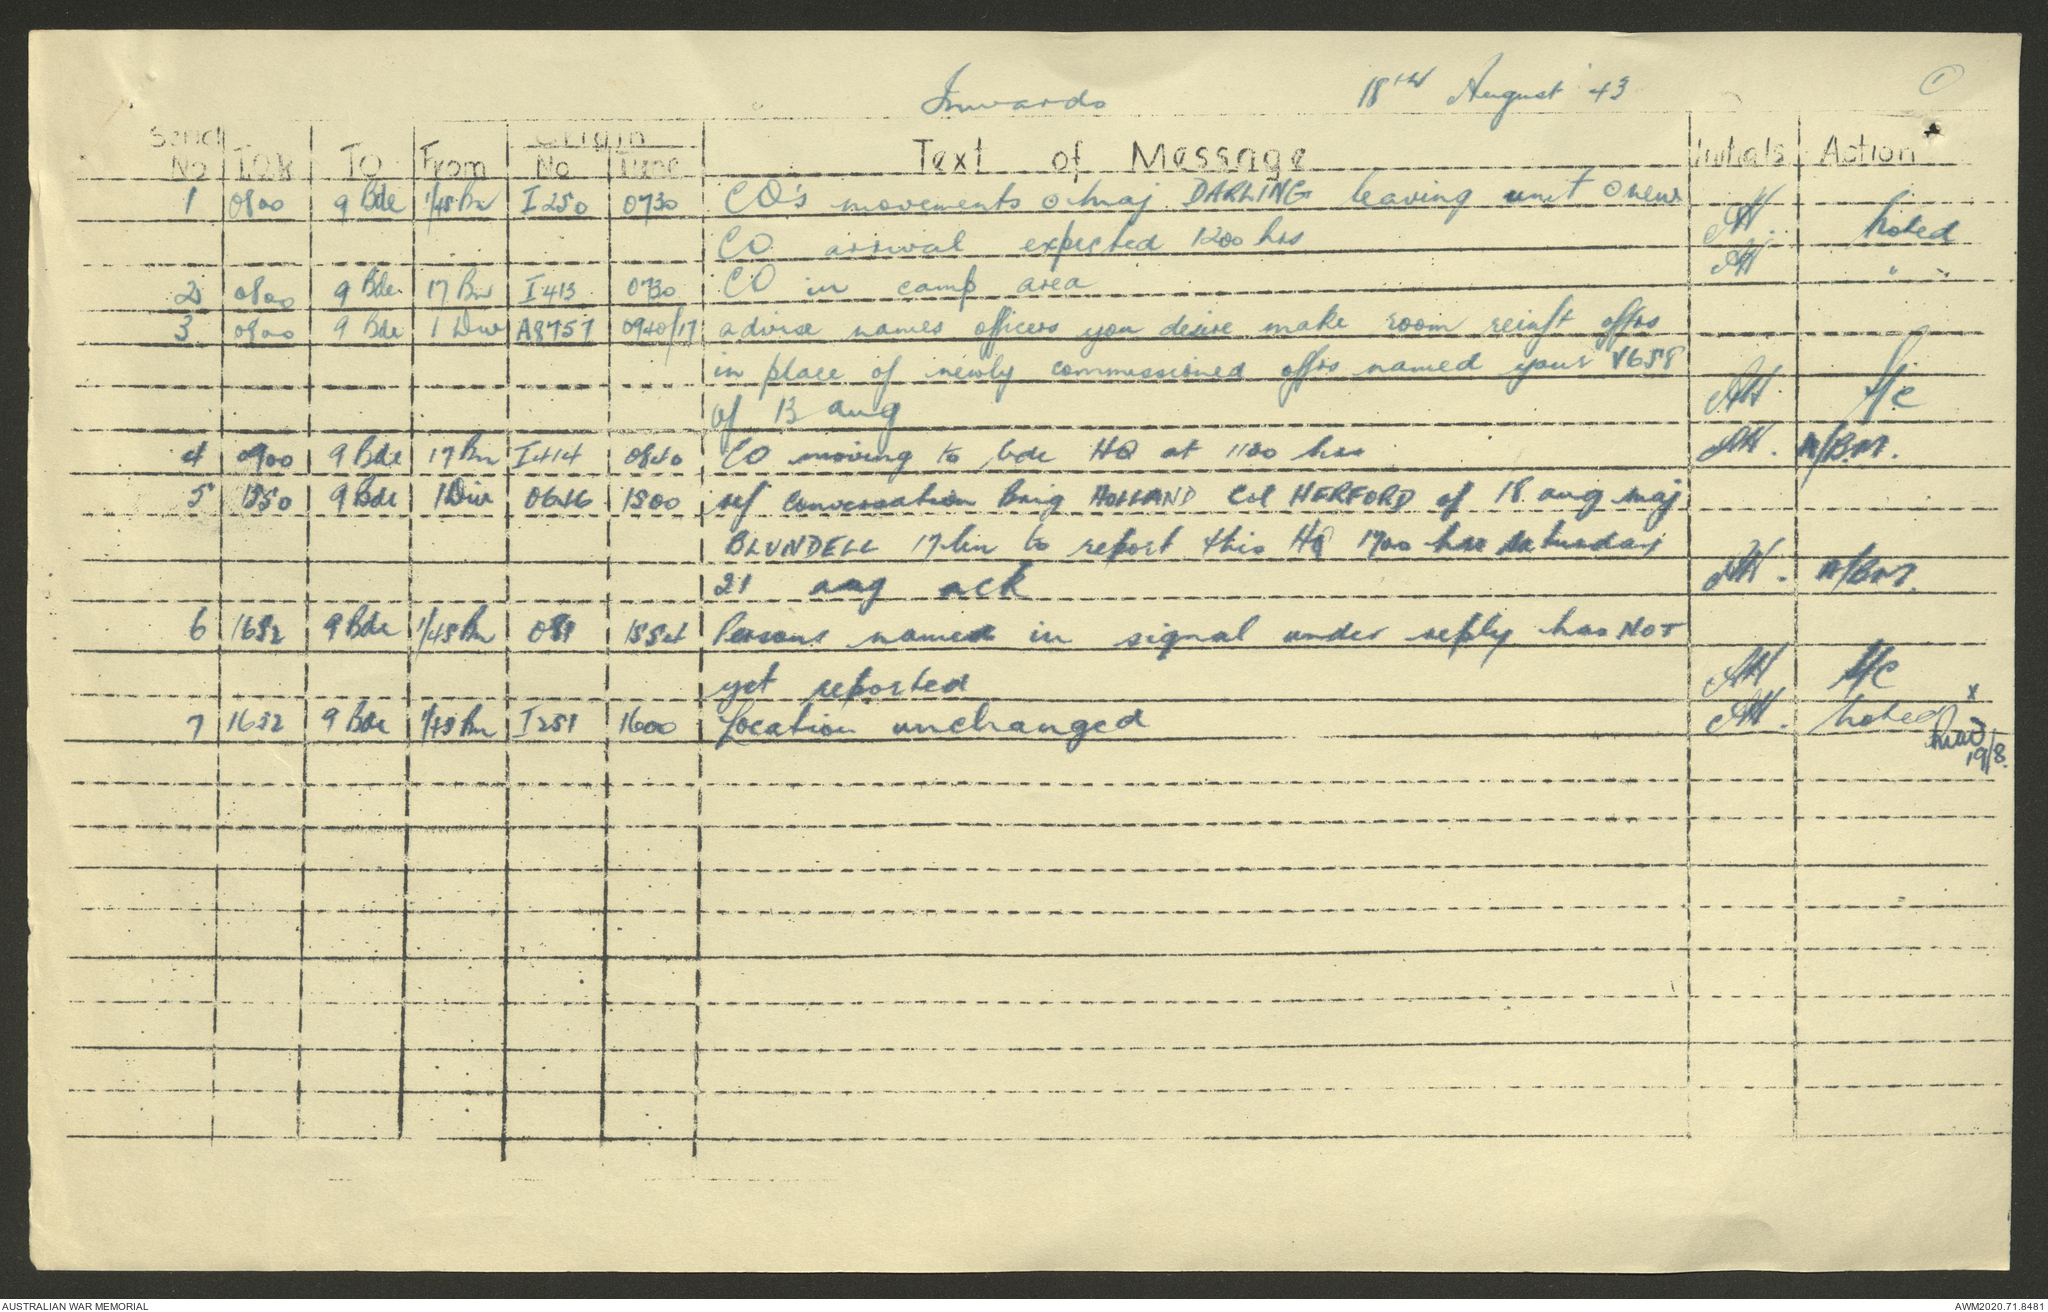 Inwards 18th August '43 1
Serial Origin
No Time To From No Time Text of Message Initials Action
1 0800 9 Bde 1/45 Bn I250 0730 CO's movements o maj DARLING leaving unit o new
CO arrival expected 1200 hrs AH. Noted
2 0800 9 Bde 17 Bn I413 0730 CO in camp area AH "
3 0800 9 Bde 1 Div A8757 0940/17 advise names officers you desire make room reinft offrs
in place of newly commissioned offrs named your V658
of 13 aug AH S/C
4 0900 9 Bde 17 Bn I414 0840 CO moving to bde HQ at 1100 hrs AH. A/B.M.
5 1550 9 Bde 1 Div 0646 1500 ref conversation Brig HOLLAND Col HERFORD of 18 aug maj
BLUNDELL 17 bn to report this HQ 1700 hrs saturday
21 aug ack AH. A/BM.
6 1632 9 Bde 1/45 Bn 089 1554 Persons named in signal under reply has NOT
yet reported AH S/C
7 1632 9 Bde 1/45 Bn I251 1600 Location unchanged AH. Noted x
19/8.
AUSTRALIAN WAR MEMORIAL AWM2020.71.8481